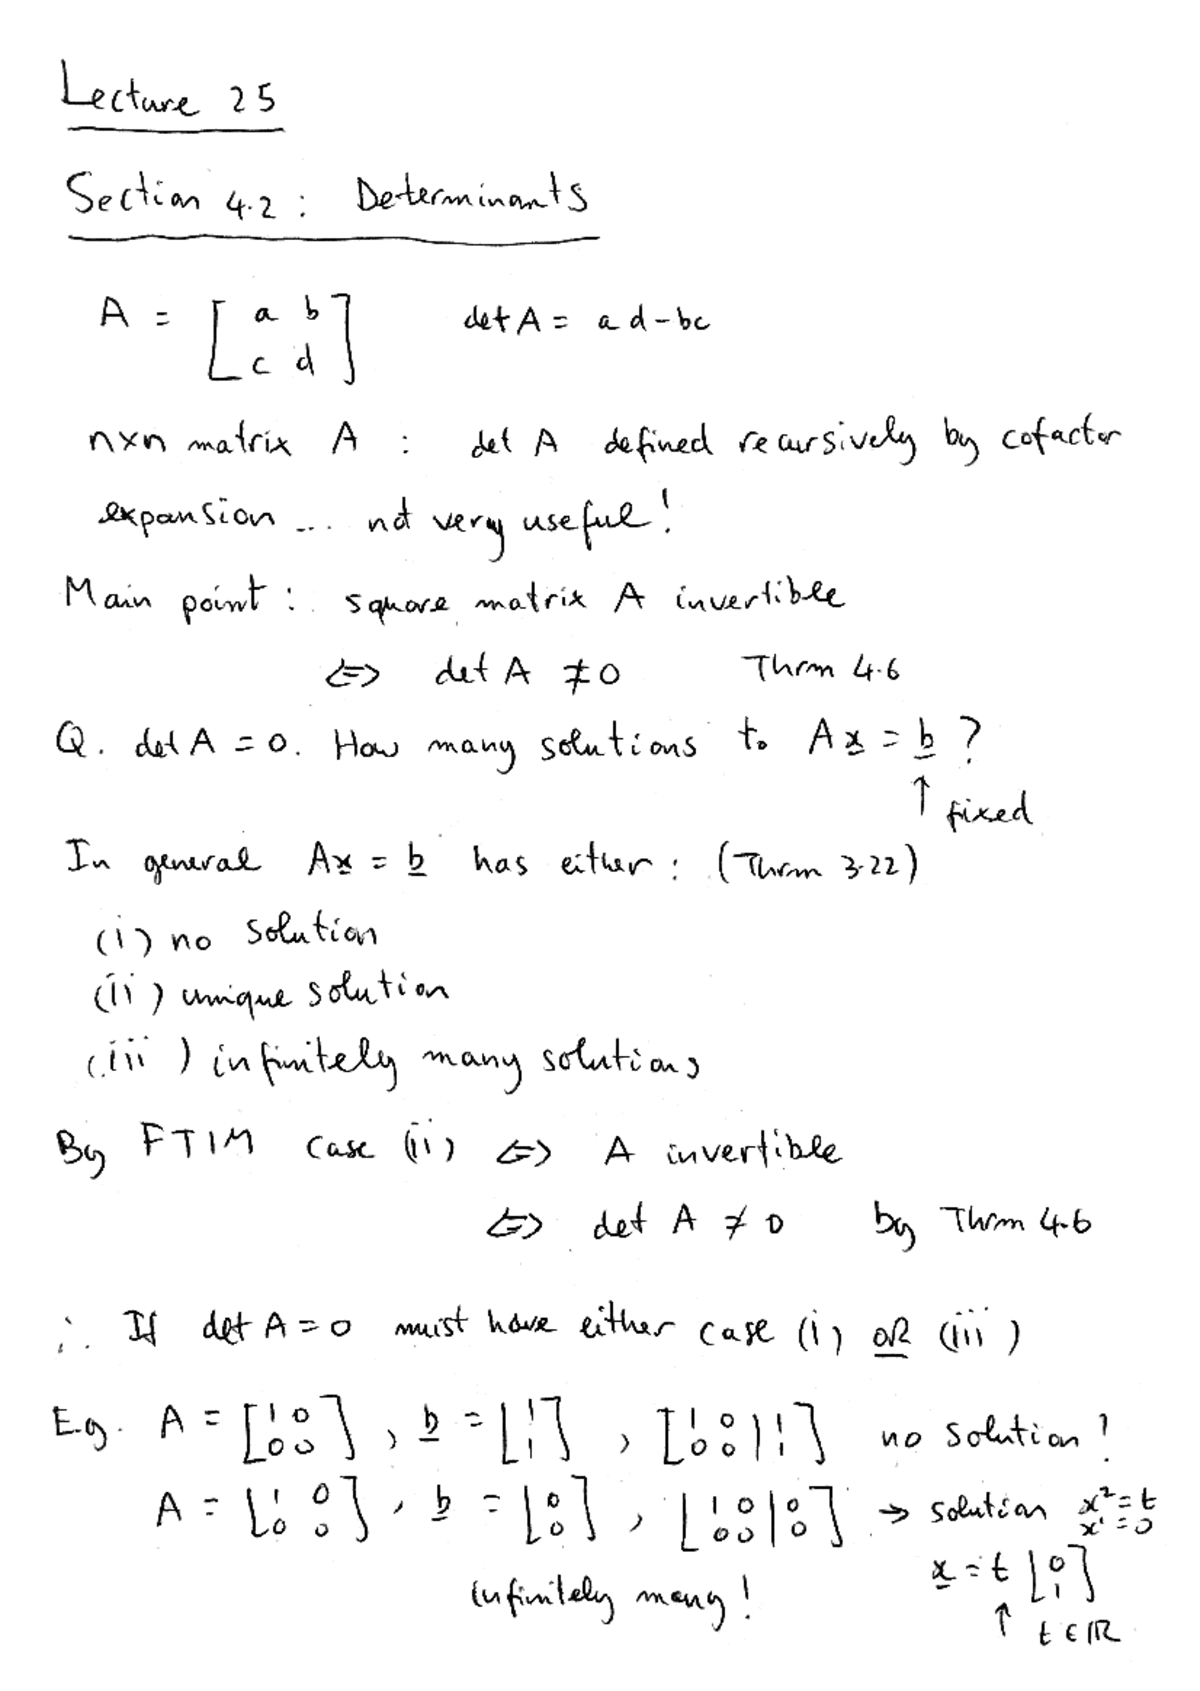 Lecture 25
Section 4.2 : Determinants
A = [ a b ; c d ] det A = ad - bc
n×n matrix A : det A defined recursively by cofactor
expansion ... not very useful!
Main point : square matrix A invertible
⇔ det A ≠ 0 Thrm 4.6
Q. det A = 0. How many solutions to Ax = b ?
↑ fixed
In general Ax = b has either : (Thrm 3.22)
(i) no solution
(ii) unique solution
(iii) infinitely many solutions
By FTIM case (ii) ⇔ A invertible
⇔ det A ≠ 0 by Thrm 4.6
∴ If det A = 0 must have either case (i) OR (iii)
E.g. A = [ 1 0 ; 0 0 ] , b = [ 1 ; 1 ] , [ 1 0 | 1 ; 0 0 | 1 ] no solution!
A = [ 1 0 ; 0 0 ] , b = [ 0 ; 0 ] , [ 1 0 | 0 ; 0 0 | 0 ] → solution x² = t
x¹ = 0
infinitely many! x = t [ 0 ; 1 ]
↑ t ∈ ℝ